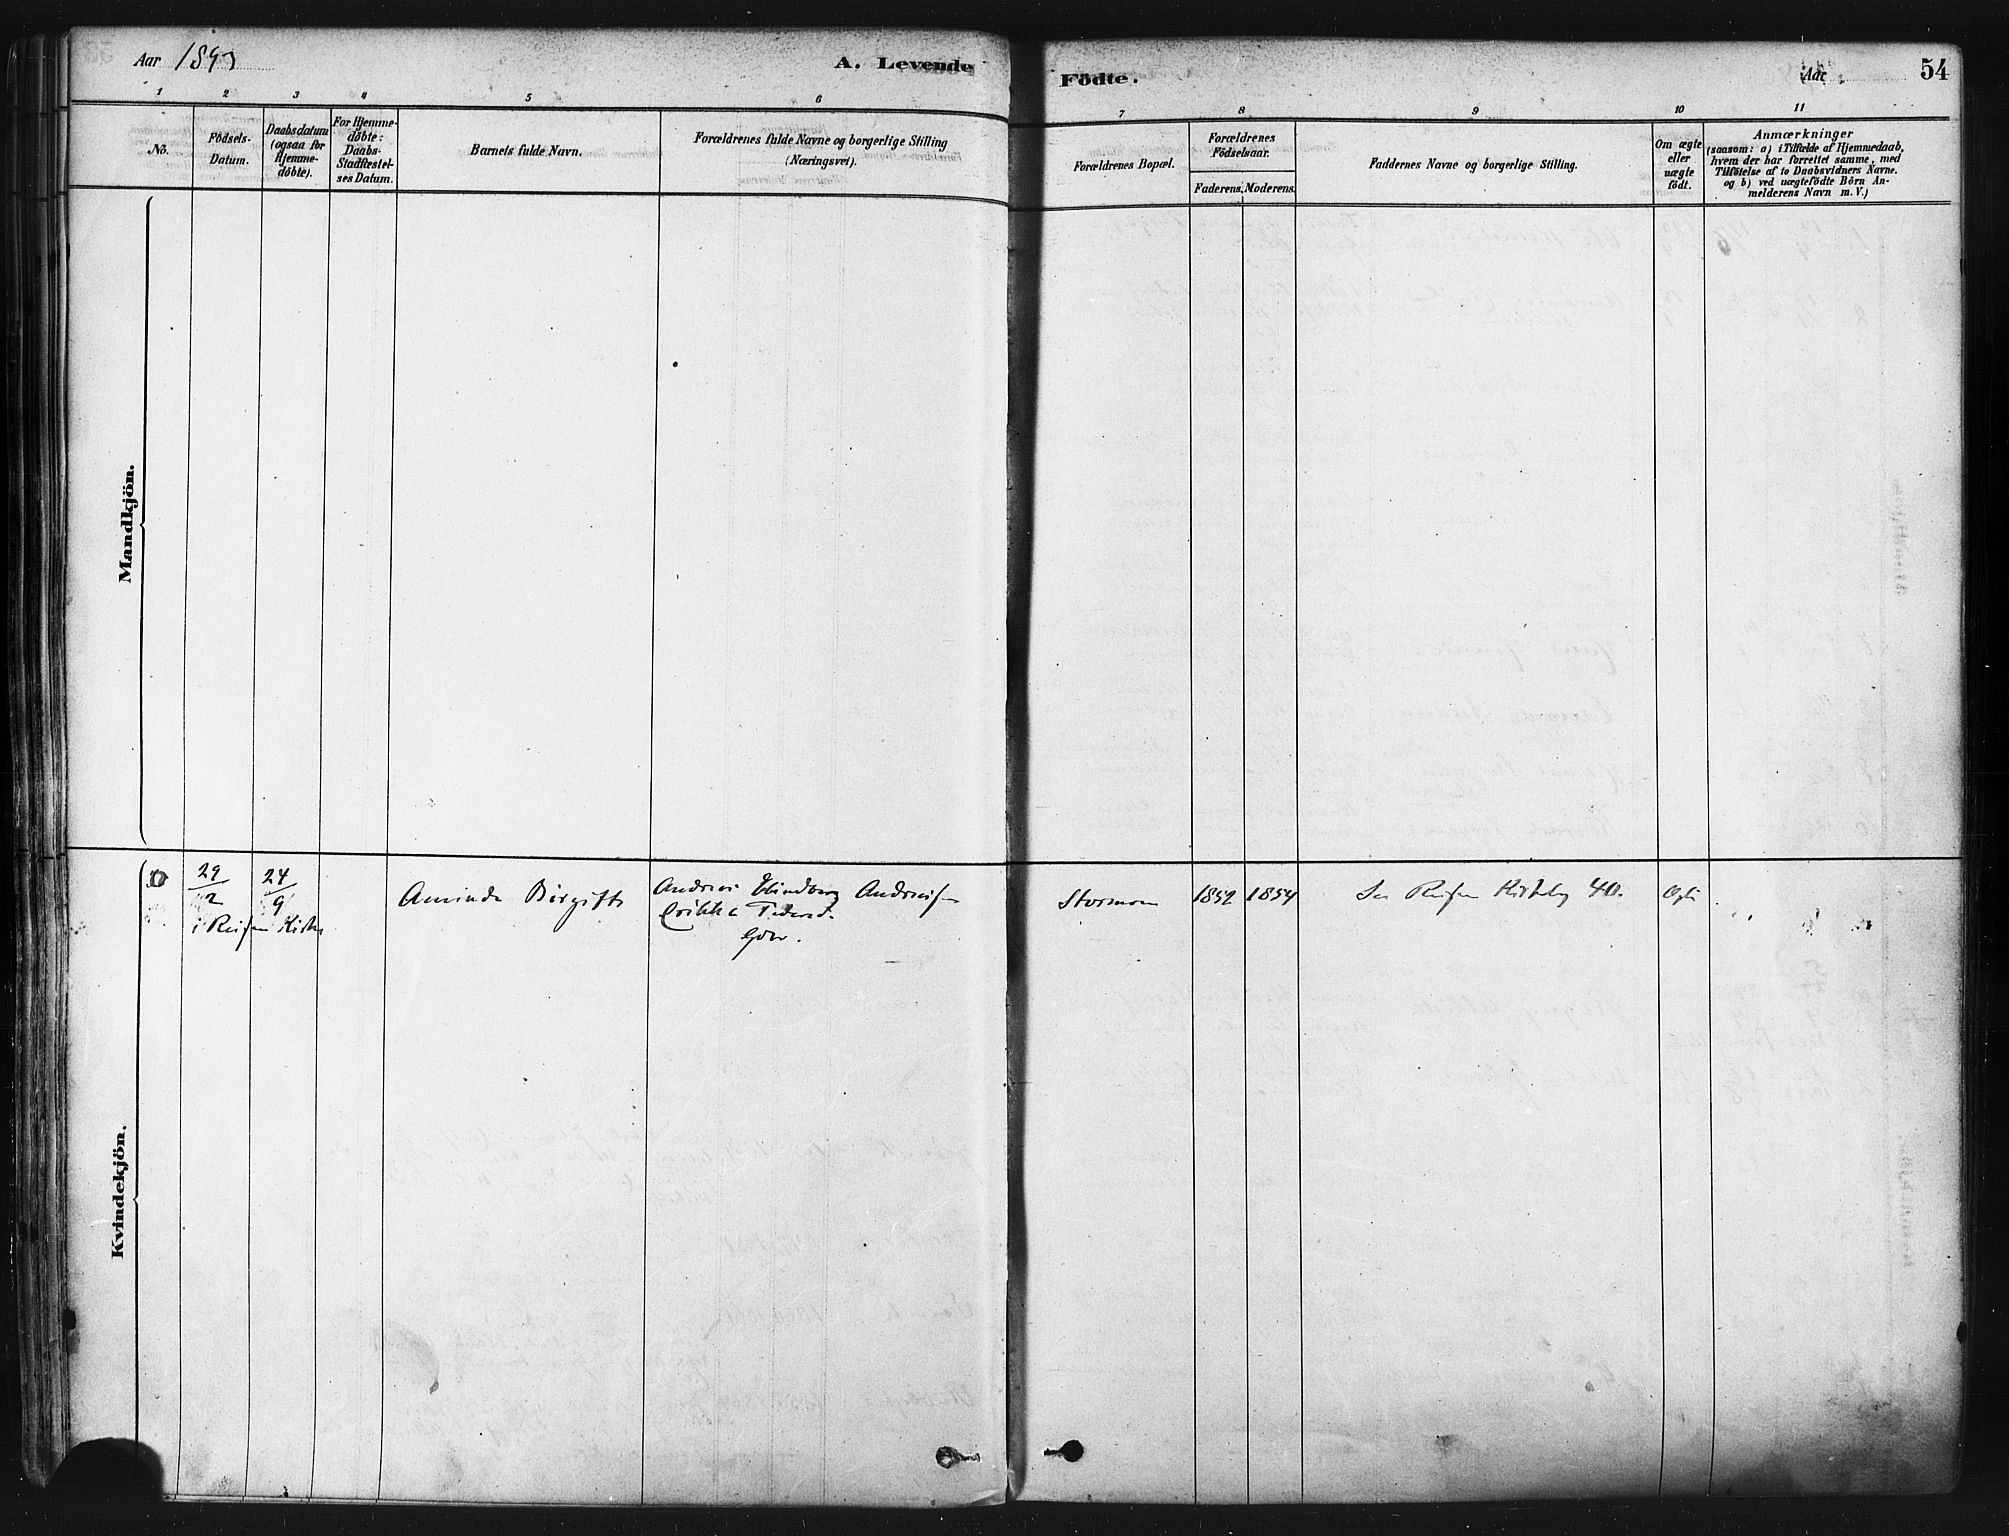 Aar 1893
A. Levende
Födte.
Aar
54
1 2 3 4 5 6 7 8 9 10 11
No.
Födsels-
Datum.
Daabsdatum
(ogsaa for
Hjemme-
döbte).
For Hjemme-
döbte:
Daabs-
Stadfæstel-
ses Datum.
Barnets fulde Navn.
Forældrenes fulde Navne og borgerlige Stilling
(Næringsvei).
Forældrenes Bopæl.
Forældrenes
Födselsaar.
Faderens. Moderens.
Faddernes Navne og borgerlige Stilling.
Om ægte
eller
uægte
födt.
Anmærkninger
(saasom: a) i Tilfælde af Hjemmedaab,
hvem der har forrettet samme, med
Tilföielse af to Daabsvidners Navne.
og b) ved uægtefödte Börn An-
melderens Navn m.V.)
Mandkjön.
Kvindekjön.
29/2
24/9
i Reisen Kirke
Aminda Birgitte
Andreas Andreas
Stormoen
1852 1854
Se Reisen Kirkebog 40.